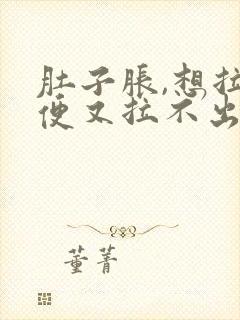 肚子胀,想拉
便又拉不出
董菁